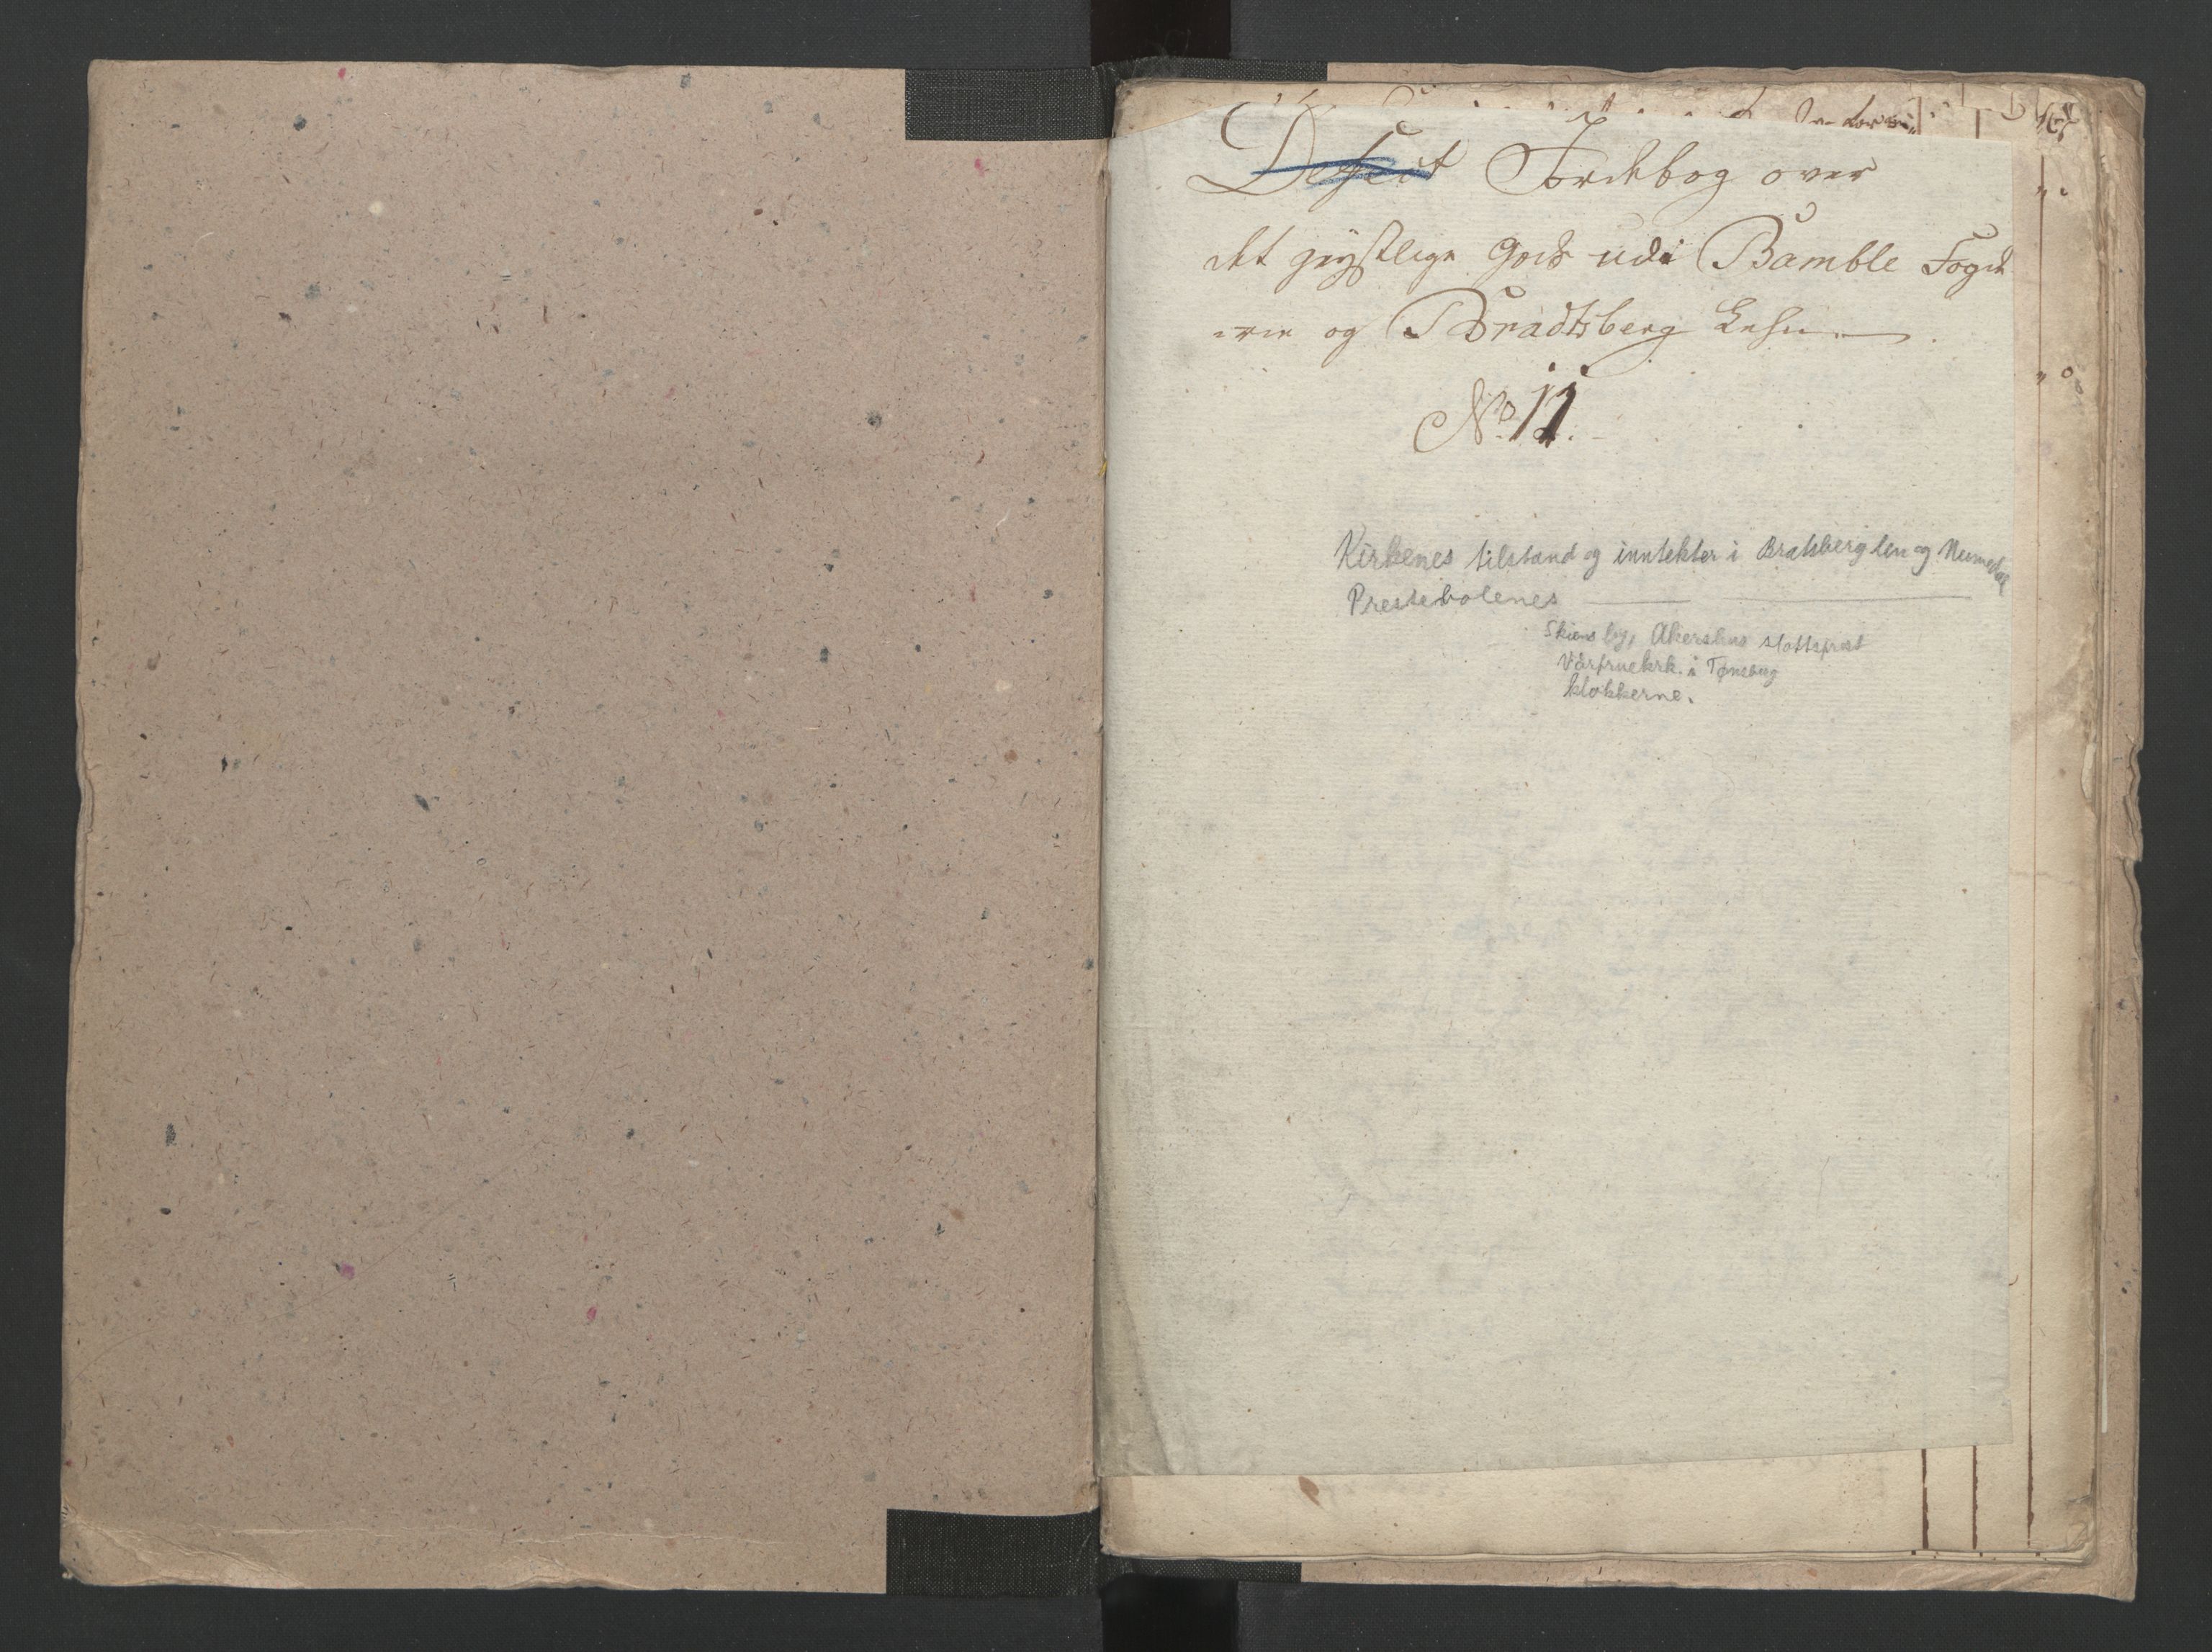 Defect Jordebog over
det geystlige Gods udi Bamble Fogde
erie og Bradtsberg Lehn
No. 11.
Kirkenes tilstand og inntekter i Bratsberg len og Numedal
Prestebolenes
Skiens by, Akershus slottsprest
Vårfruekrk. i Tønsberg
klokkerne.